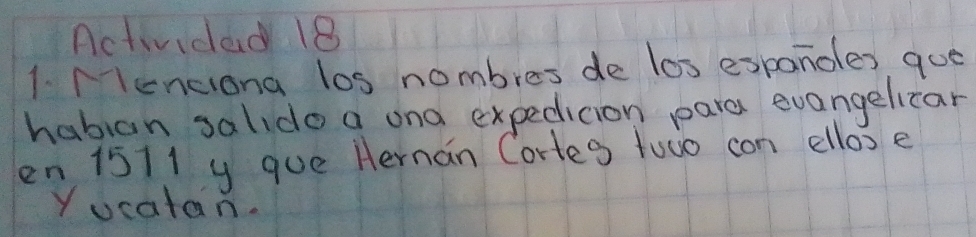 Actividad 18
1. Menciona los nombres de los españoles que
habian salido a una expedicion para evangelizar
en 1511 y que Hernán Cortes tuvo con ellos e
Yucatán.